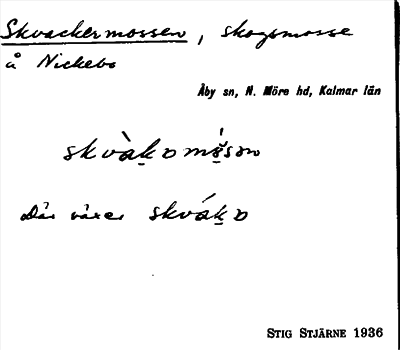 Skvackermossen, skogsmosse
å Nickebo
Åby sn, N. Möre hd, Kalmar län
Där växer
STIG STJÄRNE 1936